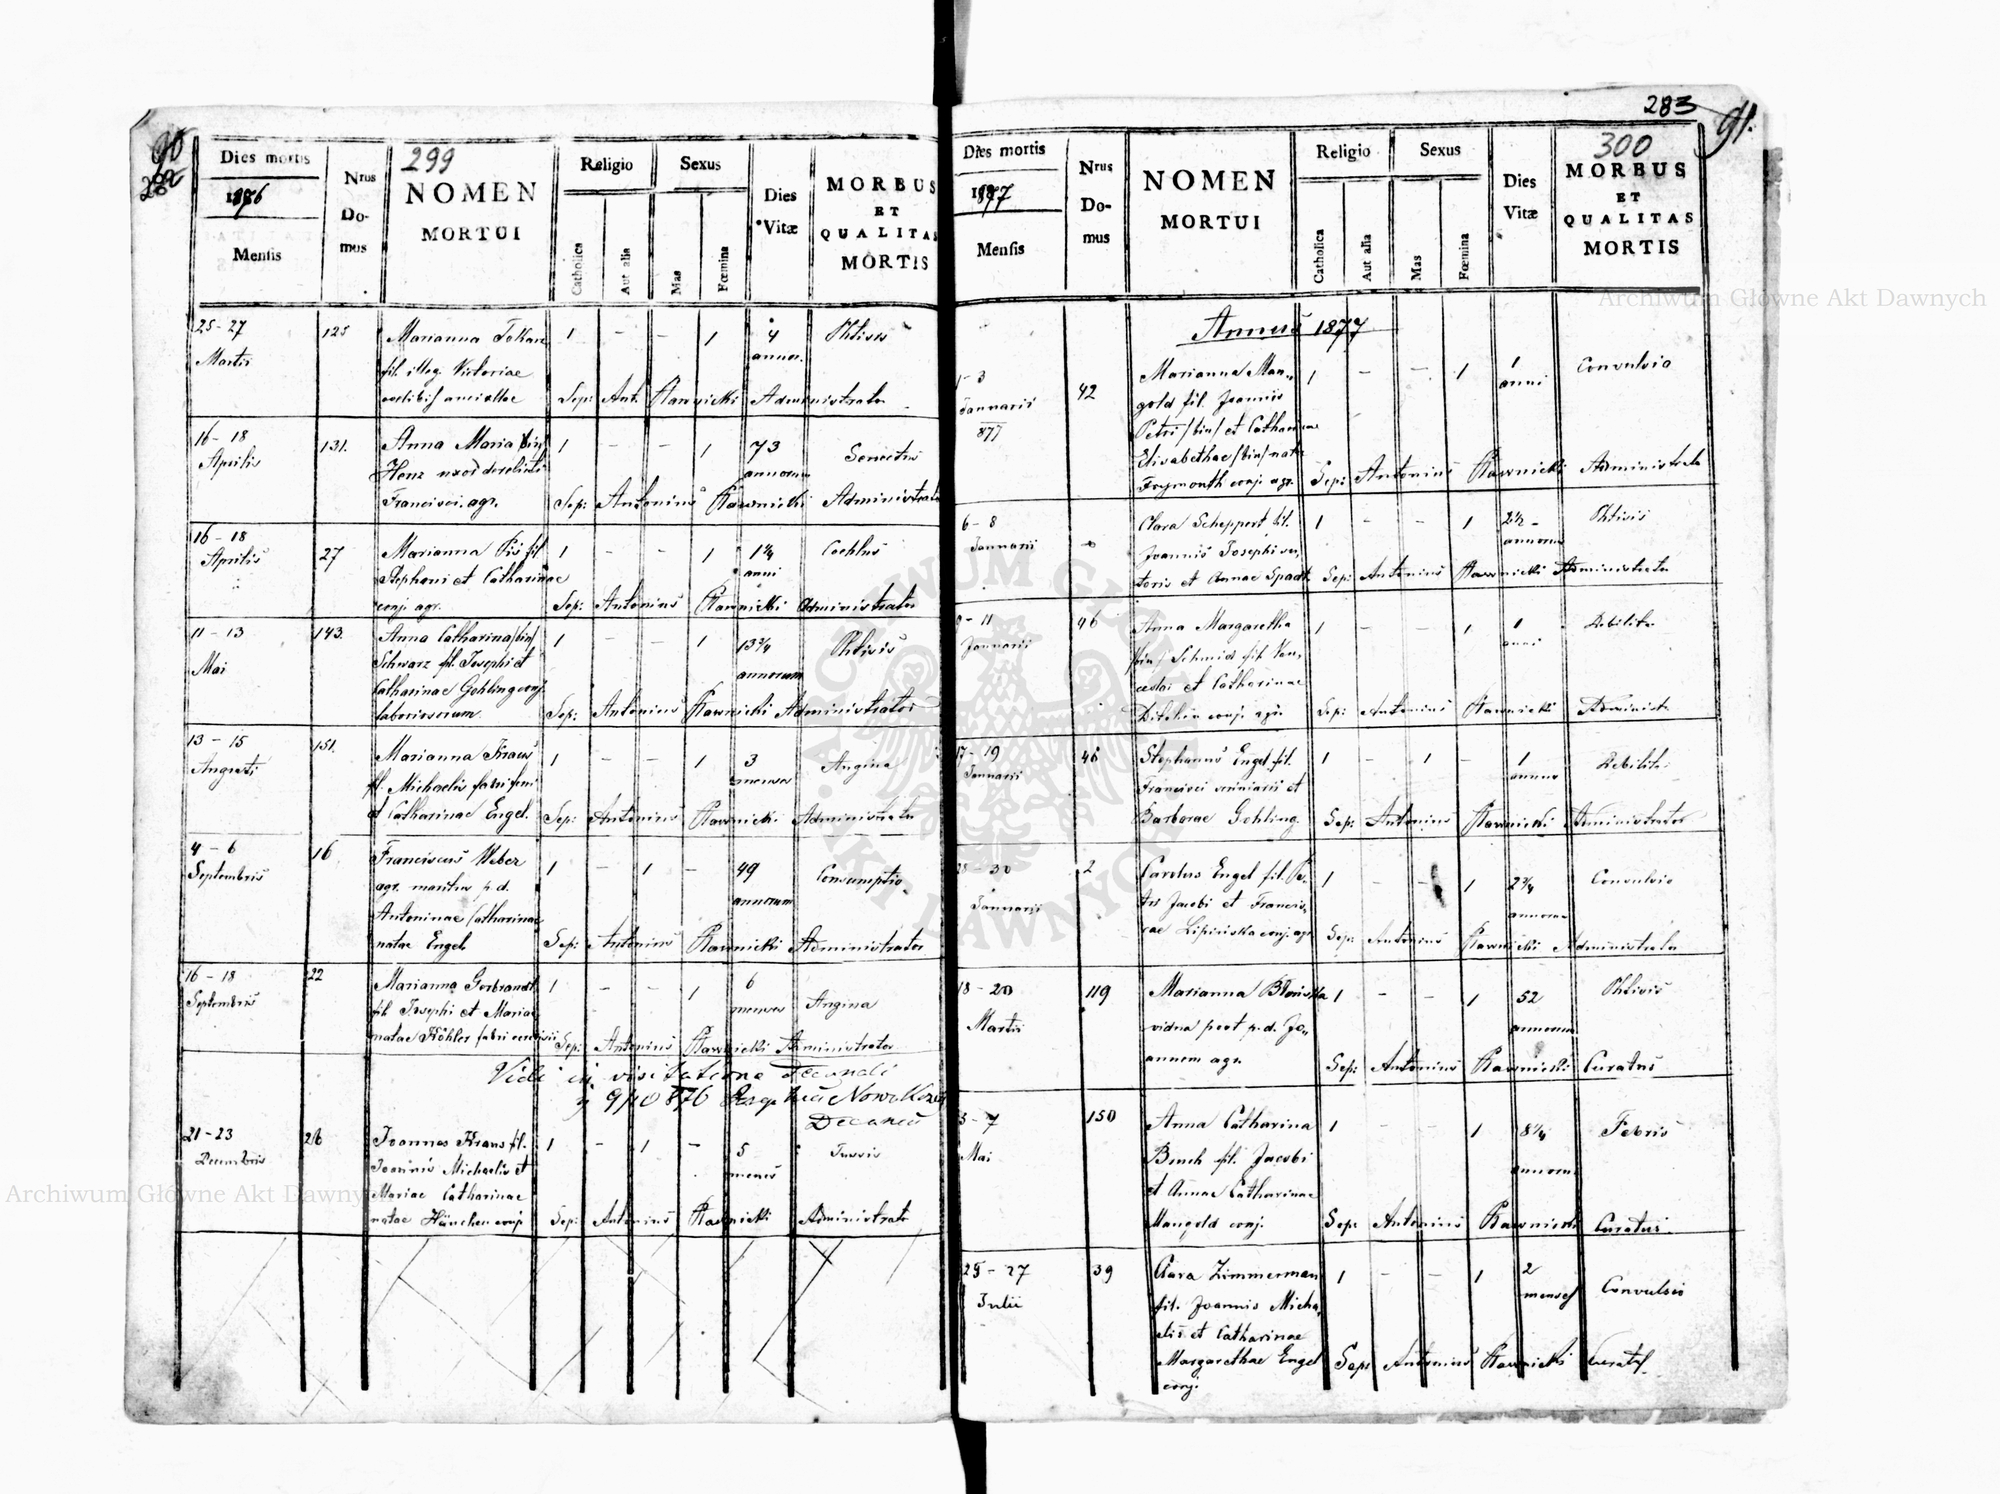 90
299
Dies mortis
1876
Mensis
Nrus Domus
NOMEN
MORTUI
Religio
Catholica
Aut alia
Sexus
Mas
Fœmina
Dies Vitæ
MORBUS
ET
QUALITAS
MORTIS
25-27 125 Marianna 1 - - 1 4 Phtisis
Martis fil. illeg. Victoriae annor.
coelibis ancillae Sep: Ant. Rawnicki Administrator
16-18 131. Anna Maria /bin/ 1 - - 1 73 Senectus
Aprilis Henz uxor derelicta annorum
Francisci agr. Sep: Antonius Rawnicki Administrator
16-18 27 Marianna Pis fil. 1 - - 1 1¼
Aprilis Stephani et Catharinae anni
conj. agr. Sep: Antonius Rawnicki Administrator
11-13 143. Anna Catharina /bin/ 1 - - 1 13¾ Phtisis
Mai Schwarz fil. Josephi et annorum
Catharinae Gohling conj.
laboriosorum Sep: Antonius Rawnicki Administrator
13-15 151. Marianna Kraus 1 - - 1 3 Angina
Augusti fil. Michaelis fabri menses
et Catharinae Engel. Sep: Antonius Rawnicki Administrator
4-6 16 Franciscus Weber 1 - 1 - 49 Consumptio
Septembris agr. maritus p. d. annorum
Antoninae Catharinae
natae Engel Sep: Antonius Rawnicki Administrator
16-18 22 Marianna Gerbrandt 1 - - 1 6 Angina
Septembris fil. Josephi et Mariae menses
natae Köhler fabri Sep: Antonius Rawnicki Administrator
Vidi in visitatione Decanali
9/10 876 Nowak
Decanus
21-23 26 Joannes Kraus fil. 1 - 1 - 5 Tussis
Decembris Joannis Michaelis et menses
Mariae Catharinae
natae Hänchen conj. Sep: Antonius Rawnicki Administrator
283
91.
300
Dies mortis
1877
Mensis
Nrus Domus
NOMEN
MORTUI
Religio
Catholica
Aut alia
Sexus
Mas
Fœmina
Dies Vitæ
MORBUS
ET
QUALITAS
MORTIS
Annus 1877
1-3 42 Marianna Man- 1 - - 1 1 Convulsio
Januarii gold fil. Joannis anni
877 Petri /bin/ et Catharinae
Elisabethae /bin/ natae Sep: Antonius Rawnicki Administrator
Freymouth conj. agr.
6-8 Clara Scheppert fil. 1 - - 1 2½ Phtisis
Januarii Joannis Josephi annorum
et Annae Spadt Sep: Antonius Rawnicki Administrator
9-11 46 Anna Margaretha 1 - - 1 1 Debilitas
Januarii /bin/ Schmid fil. Ven- anni
ceslai et Catharinae
conj. agr. Sep: Antonius Rawnicki Administr
17-19 46 Stephanus Engel fil. 1 - 1 - 1 Debilitas
Januarii Francisci et annus
Barbarae Gohling Sep: Antonius Rawnicki Administrator
28-30 2 Carolus Engel fil. Pe- 1 - - 1 2¾ Convulsio
Januarii tri Jacobi et Francis- annorum
cae Lipinska conj. agr. Sep: Antonius Rawnicki Administrator
18-20 119 Marianna Blonska 1 - - 1 52 Phtisis
Martis vidua post p. d. Jo- annorum
annem agr. Sep: Antonius Rawnicki Curatus
5-7 150 Anna Catharina 1 - - 1 8¼ Febris
Mai fil. Jacobi annorum
et Annae Catharinae
Mangold conj. Sep: Antonius Rawnicki Curatus.
25-27 39 Clara Zimmerman 1 - - 1 2 Convulsio
Julii fil. Joannis Micha- menses
elis et Catharinae
Margarethae Engel Sep: Antonius Rawnicki Curatus.
conj.
Archiwum Główne Akt Dawnych
Archiwum Główne Akt Dawnych
ARCHIWUM GŁÓWNE AKT DAWNYCH